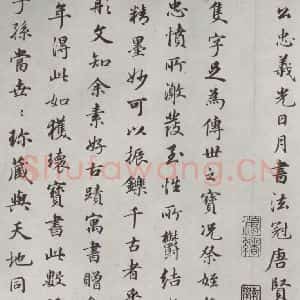 公忠義光日月書法冠唐賢
隻字足為傳世之寶況祭姪
忠憤所激發至性所鬱結
精墨妙可以振鑠千古者
年得此如獲瓌寶書此數
形文知余素好古蹟寓書贈
子孫當世〻珍藏與天地同
Shufawang.CN